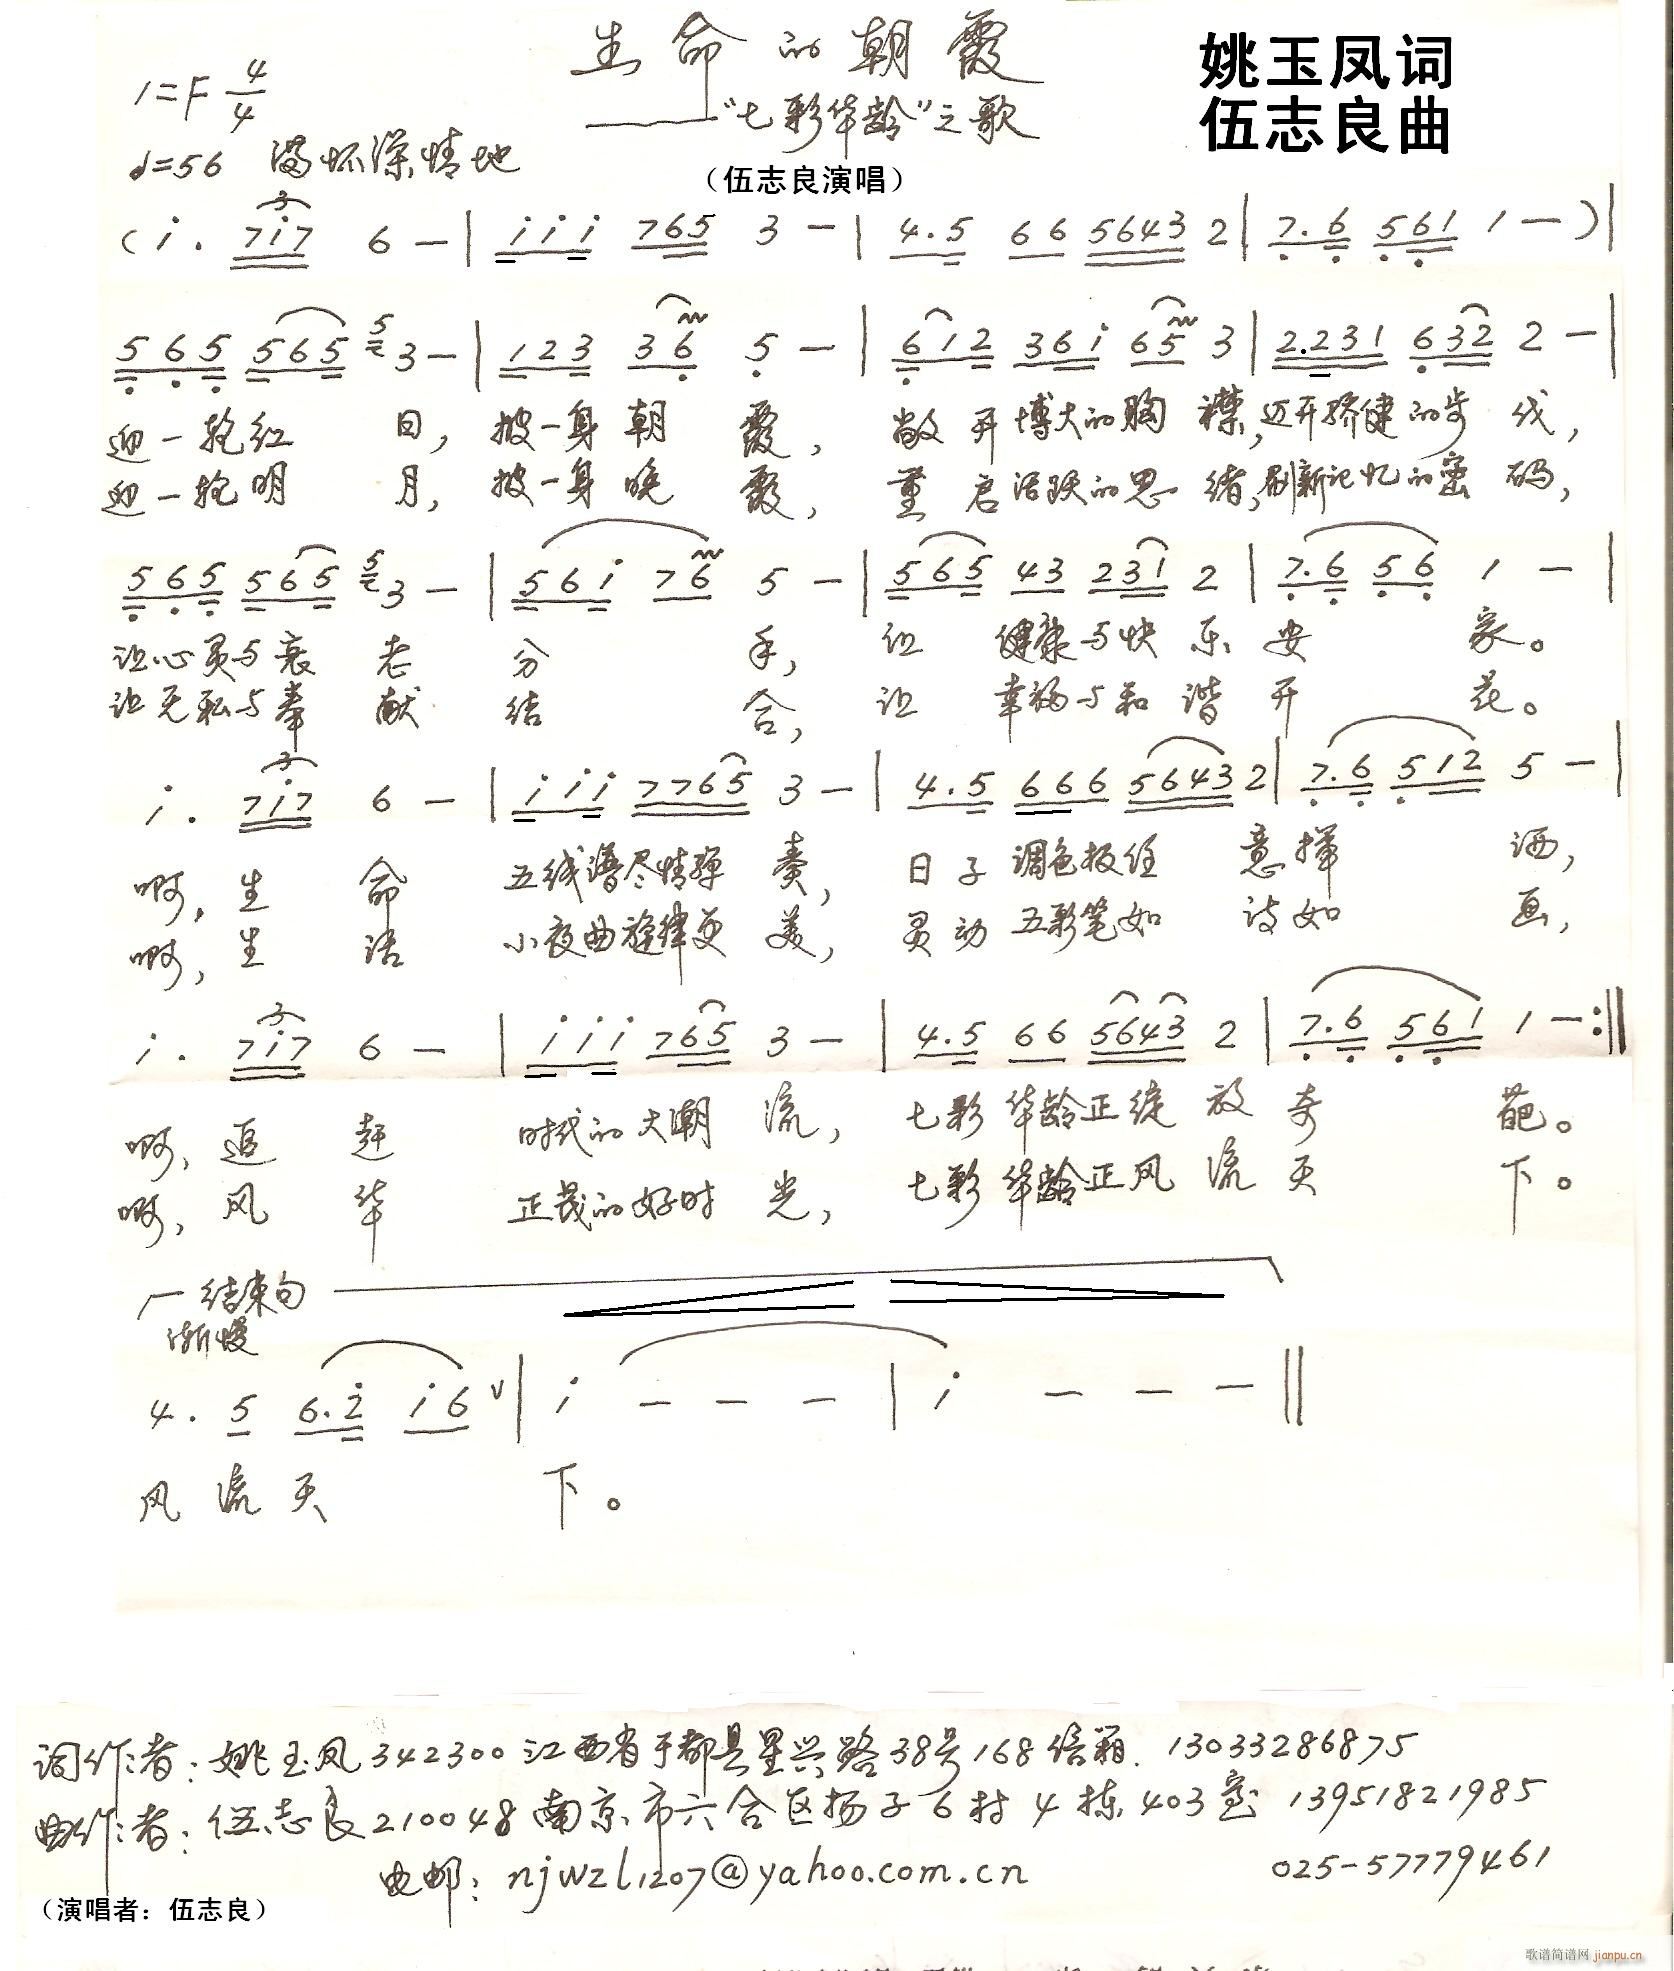 生命的朝霞
——“七彩华龄”之歌
姚玉凤词
伍志良曲
1=F 4/4
♩=56 满怀深情地
（伍志良演唱）
( i. 7i7 6 — | i i i 765 3 — | 4.5 66 5643 2 | 7.6 561 1 — ) |
565 565 3 — | 123 36 5 — | 612 36i 65 3 | 2.231 632 2 — |
迎一轮红日，披一身朝霞，敞开博大的胸襟，迈开矫健的步伐，
迎一轮明月，披一身晚霞，重启活跃的思绪，刷新记忆的密码，
565 565 3 — | 56i 76 5 — | 565 43 231 2 | 7.6 56 1 — |
让心灵与衰老分手，让健康与快乐安家。
让无私与奉献结合，让幸福与和谐开花。
i. 7i7 6 — | i i i 7765 3 — | 4.5 666 5643 2 | 7.6 512 5 — |
啊，生命五线谱尽情弹奏，日子调色板任意挥洒，
啊，生活小夜曲旋律更美，灵动五彩笔如诗如画，
i. 7i7 6 — | i i i 765 3 — | 4.5 66 5643 2 | 7.6 561 1 — :||
啊，追赶时代的大潮流，七彩华龄正绽放奇葩。
啊，风华正茂的好时光，七彩华龄正风流天下。
结束句
渐慢
4. 5 6.2 i6 v | i — — — | i — — — ||
风流天下。
词作者：姚玉凤 342300 江西省于都县里兴路38号168信箱. 13033286875
曲作者：伍志良 210048 南京市六合区扬子6村4栋403室 13951821985
电邮：njwzl1207@yahoo.com.cn 025-57779461
（演唱者：伍志良）
歌谱简谱网 jianpu.cn